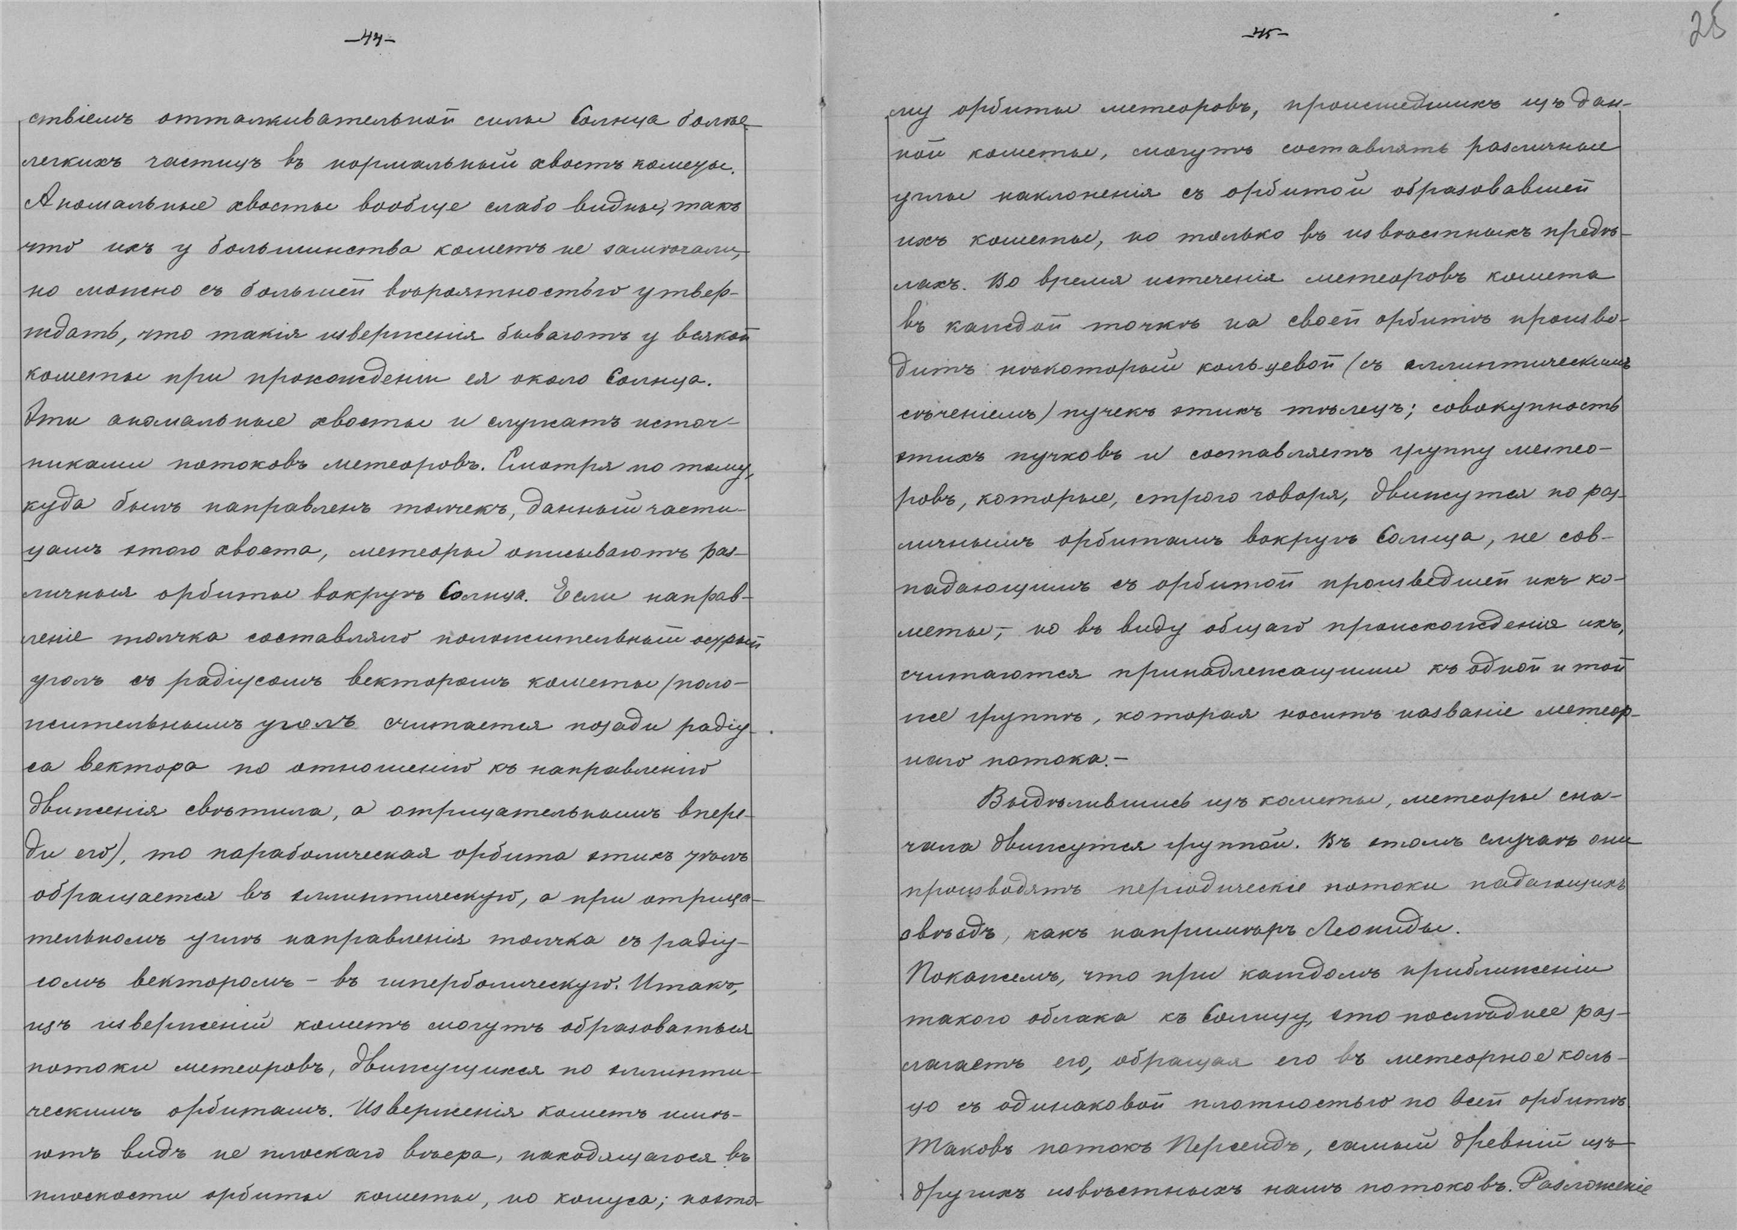 -44-
ствіемъ отталкивательной силы Солнца болѣе
легкихъ частицъ въ нормальный хвостъ кометы.
Аномальные хвосты вообще слабо видны, такъ
что ихъ у большинства кометъ не замѣчали,
но можно съ большей вѣроятностью утвер-
ждать, что такія изверженія бываютъ у всякой
кометы при прохожденіи ея около Солнца.
Эти аномальные хвосты и служатъ источ-
никами потоковъ метеоровъ. Смотря по тому,
куда былъ направленъ толчекъ, данный части-
цамъ этого хвоста, метеоры описываютъ раз-
личныя орбиты вокругъ Солнца. Если направ-
леніе толчка составляло положительный острый
уголъ съ радіусомъ векторомъ кометы (поло-
жительнымъ уголъ считается позади радіу-
са вектора по отношенію къ направленію
движенія свѣтила, а отрицательнымъ впере-
ди его), то параболическая орбита этихъ тѣлъ
обращается въ эллиптическую, а при отрица-
тельномъ углѣ направленія толчка съ радіу-
сомъ векторомъ - въ гиперболическую. Итакъ,
изъ изверженій кометъ могутъ образоваться
потоки метеоровъ, движущихся по эллипти-
ческимъ орбитамъ. Изверженія кометъ имѣ-
ютъ видъ не плоскаго вѣера, находящагося въ
плоскости орбиты кометы, но конуса; поэто-
-45-
25
му орбиты метеоровъ, происшедшихъ изъ дан-
ной кометы, могутъ составлять различные
углы наклоненія съ орбитой образовавшей
ихъ кометы, но только въ извѣстныхъ предѣ-
лахъ. Во время истеченія метеоровъ комета
въ каждой точкѣ на своей орбитѣ произво-
дитъ нѣкоторый кольцевой (съ эллиптическимъ
сѣченіемъ) пучекъ этихъ тѣлецъ; совокупность
этихъ пучковъ и составляетъ группу метео-
ровъ, которые, строго говоря, движутся по раз-
личнымъ орбитамъ вокругъ Солнца, не сов-
падающимъ съ орбитой произведшей ихъ ко-
меты, - но въ виду общаго происхожденія ихъ,
считаются принадлежащими къ одной и той
же группѣ, которая носитъ названіе метеор-
наго потока. -
Выдѣлившись изъ кометы, метеоры сна-
чала движутся группой. Въ этомъ случаѣ они
производятъ періодическіе потоки падающихъ
звѣздъ, какъ напримѣръ Леониды.
Покажемъ, что при каждомъ приближеніи
такого облака къ Солнцу, это послѣднее раз-
лагаетъ его, обращая его въ метеорное коль-
цо съ одинаковой плотностью по всей орбитѣ.
Таковъ потокъ Персеидъ, самый древній изъ
другихъ извѣстныхъ намъ потоковъ. Разложеніе